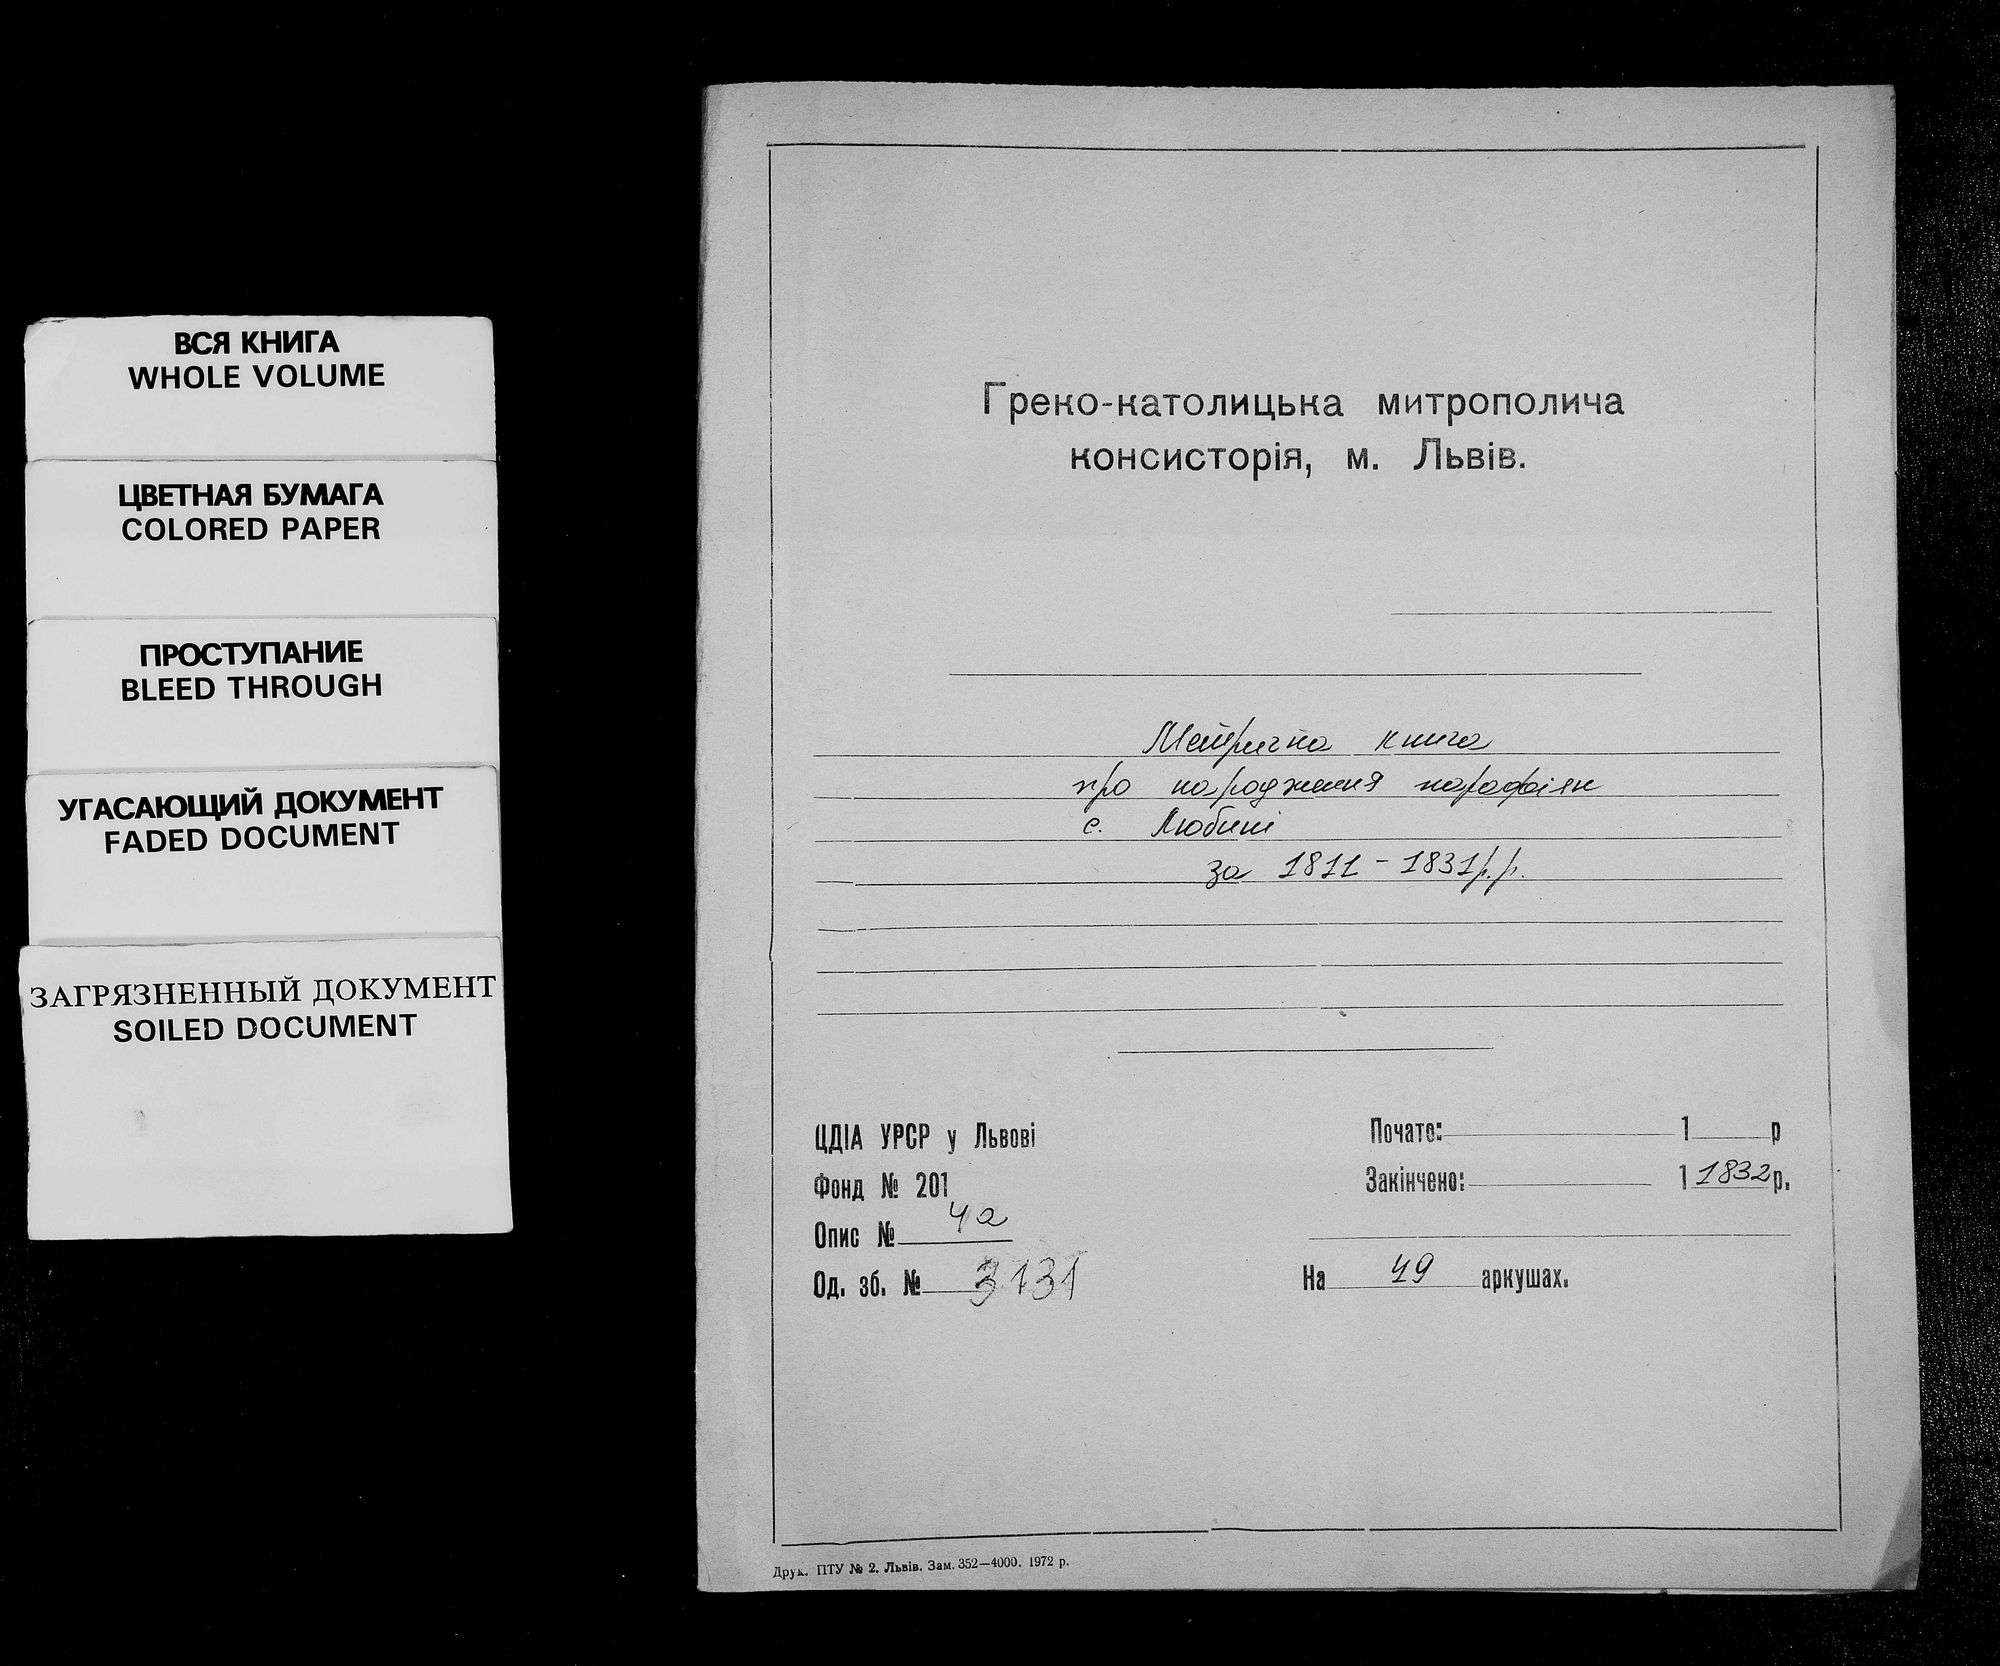 ВСЯ КНИГА
WHOLE VOLUME
ЦВЕТНАЯ БУМАГА
COLORED PAPER
ПРОСТУПАНИЕ
BLEED THROUGH
УГАСАЮЩИЙ ДОКУМЕНТ
FADED DOCUMENT
ЗАГРЯЗНЕННЫЙ ДОКУМЕНТ
SOILED DOCUMENT
Греко-католицька митрополича
консисторія, м. Львів.
Метрична книга
про народження парафіян
с. Любині
за 1811 - 1831р.р.
ЦДІА УРСР у Львові
Фонд № 201
Опис № 4а
Од. зб. № 3131
Почато: 1 р
Закінчено: 1 1832 р.
На 49 аркушах.
Друк. ПТУ № 2. Львів. Зам. 352—4000. 1972 р.